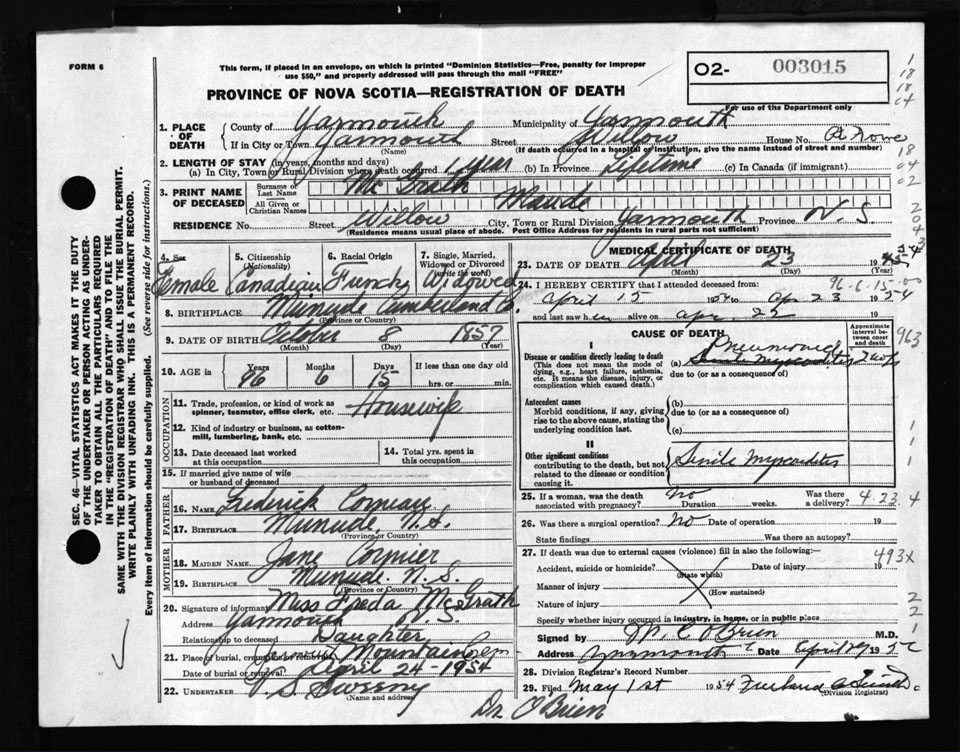 FORM 6
This form, if placed in an envelope, on which is printed "Dominion Statistics—Free, penalty for improper
use $50," and properly addressed will pass through the mail "FREE"
PROVINCE OF NOVA SCOTIA—REGISTRATION OF DEATH
O2- 003015
For use of the Department only
1. PLACE OF DEATH { County of Yarmouth Municipality of Yarmouth
If in City or Town Yarmouth Street Willow House No.
(Name) (If death occurred in a hospital or institution, give the name instead of street and number)
2. LENGTH OF STAY (in years, months and days)
(a) In City, Town or Rural Division where death occurred (b) In Province Lifetime (c) In Canada (if immigrant)
3. PRINT NAME OF DECEASED { Surname or Last Name McGrath
All Given or Christian Names Maude
RESIDENCE No. Street Willow City, Town or Rural Division Yarmouth Province N.S.
(Residence means usual place of abode. Post Office Address for residents in rural parts not sufficient)
SEC. 46—VITAL STATISTICS ACT MAKES IT THE DUTY
OF THE UNDERTAKER OR PERSON ACTING AS UNDER-
TAKER TO OBTAIN ALL THE PARTICULARS REQUIRED
IN THE "REGISTRATION OF DEATH" AND TO FILE THE
SAME WITH THE DIVISION REGISTRAR WHO SHALL ISSUE THE BURIAL PERMIT.
WRITE PLAINLY WITH UNFADING INK. THIS IS A PERMANENT RECORD.
Every item of information should be carefully supplied. (See reverse side for instructions.)
4. Sex Female
5. Citizenship (Nationality) Canadian
6. Racial Origin French
7. Single, Married, Widowed or Divorced (write the word) Widowed
8. BIRTHPLACE Cumberland Co.
(Province or Country)
9. DATE OF BIRTH October 8 1857
(Month) (Day) (Year)
10. AGE in Years 96 Months 6 Days 15 If less than one day old
hrs. or min.
OCCUPATION
11. Trade, profession, or kind of work as
spinner, teamster, office clerk, etc. Housewife
12. Kind of industry or business, as cotton-
mill, lumbering, bank, etc.
13. Date deceased last worked
at this occupation
14. Total yrs. spent in
this occupation
15. If married give name of wife
or husband of deceased
FATHER
16. NAME
17. BIRTHPLACE N.S.
(Province or Country)
MOTHER
18. MAIDEN NAME Jane Cormier
19. BIRTHPLACE N.S.
(Province or Country)
20. Signature of informant Miss Freda McGrath
Address Yarmouth N.S.
Relationship to deceased Daughter
21. Place of burial, cremation or removal Mountain Cem
Date of burial or removal April 24-1954
22. UNDERTAKER Sweeny
(Name and address)
MEDICAL CERTIFICATE OF DEATH
23. DATE OF DEATH April 23 1954
(Month) (Day)
24. I HEREBY CERTIFY that I attended deceased from:
April 15 1954 to Ap 23 1954
and last saw her alive on Apr. 22
CAUSE OF DEATH
Approximate interval between onset and death
I
Disease or condition directly leading to death
(This does not mean the mode of
dying, e.g., heart failure, asthenia,
etc. It means the disease, injury, or
complication which caused death.)
(a) Pneumonia
due to (or as a consequence of)
Antecedent causes
Morbid conditions, if any, giving
rise to the above cause, stating the
underlying condition last.
(b)
due to (or as a consequence of)
(c)
II
Other significant conditions
contributing to the death, but not
related to the disease or condition
causing it.
Senile Myocarditis
25. If a woman, was the death
associated with pregnancy? No Duration weeks. Was there
a delivery?
4.23.4
26. Was there a surgical operation? No Date of operation 19
State findings Was there an autopsy?
27. If death was due to external causes (violence) fill in also the following:—
493X
Accident, suicide or homicide? Date of injury 19
(State which)
Manner of injury (How sustained)
Nature of injury
Specify whether injury occurred in industry, in home, or in public place
Signed by O'Brien M.D.
Address Yarmouth Date April 29 195
28. Division Registrar's Record Number
29. Filed May 1st 1954
(Division Registrar)
Dr. O'Brien